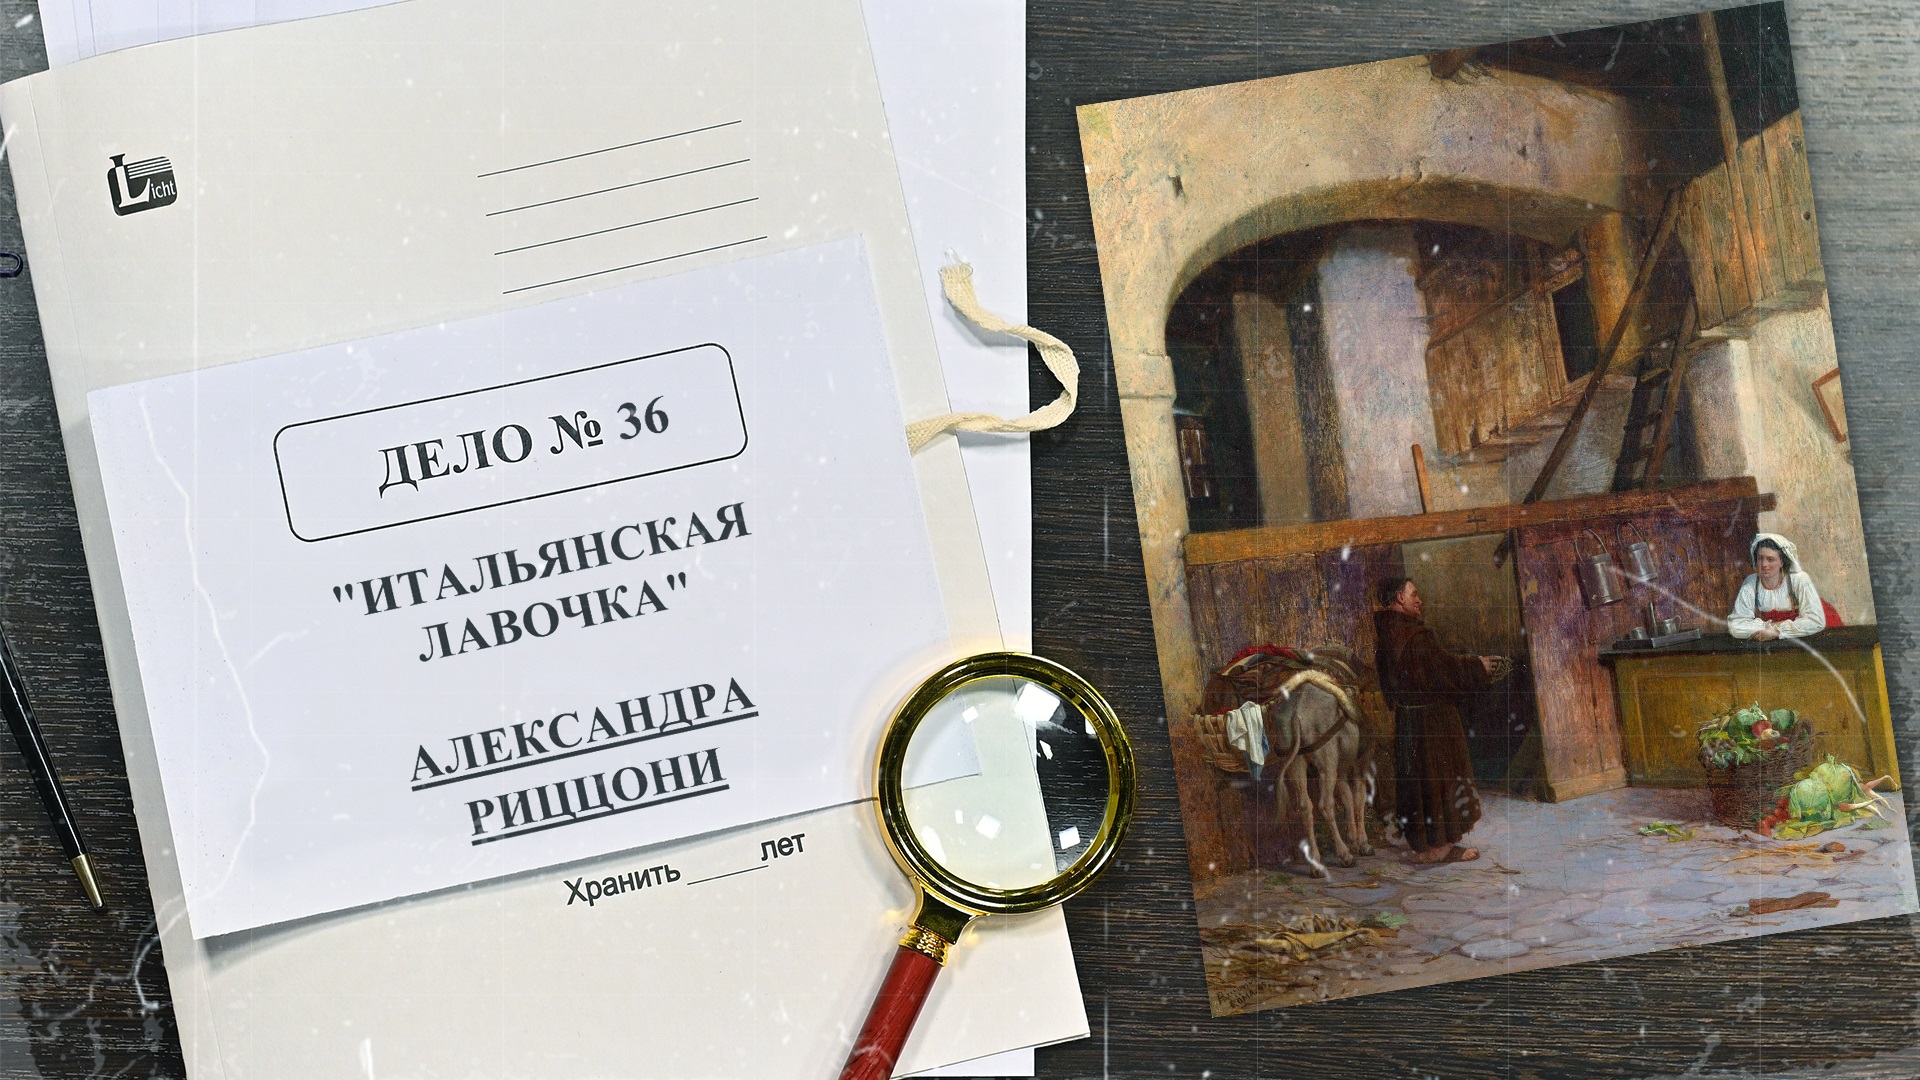 Licht
ДЕЛО № 36
"ИТАЛЬЯНСКАЯ
ЛАВОЧКА"
АЛЕКСАНДРА
РИЦЦОНИ
Хранить _____лет